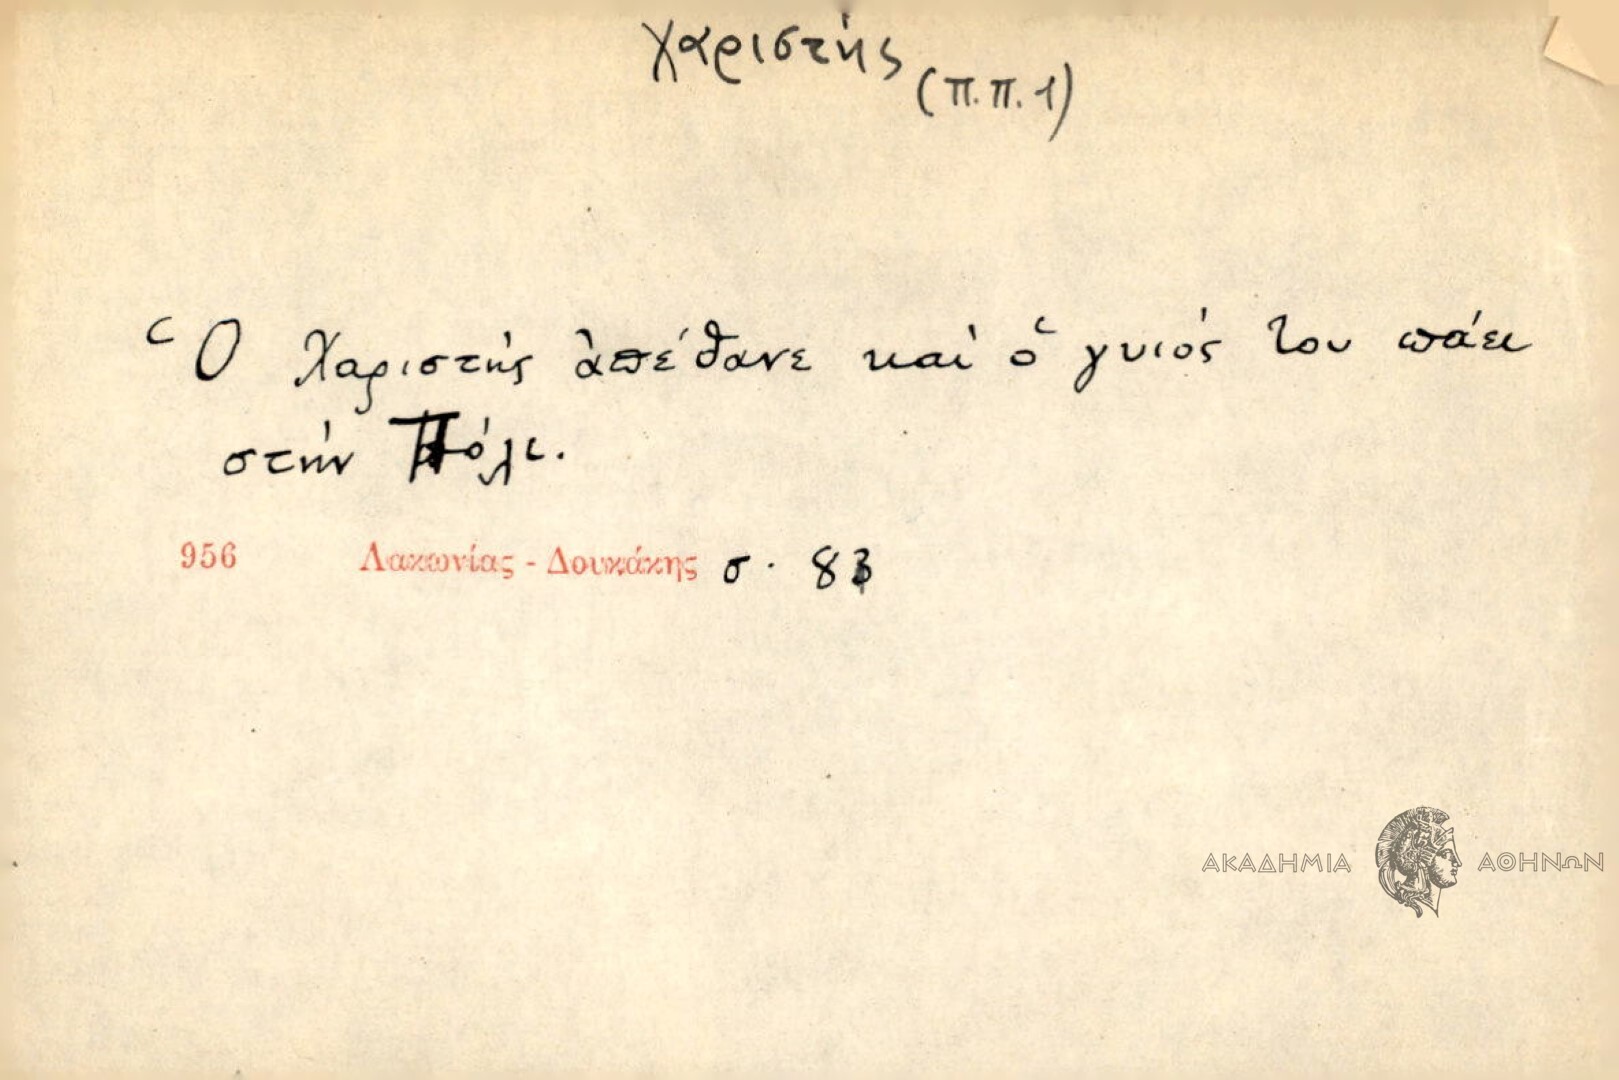 χαριστής
(π.π. 1)
Ὁ Χαριστής ἀπέθανε καί ὁ γυιός του πάει
στήν Πόλι.
956 Λακωνίας - Δουκάκης σ. 83
ΑΚΑΔΗΜΙΑ ΑΘΗΝΩΝ